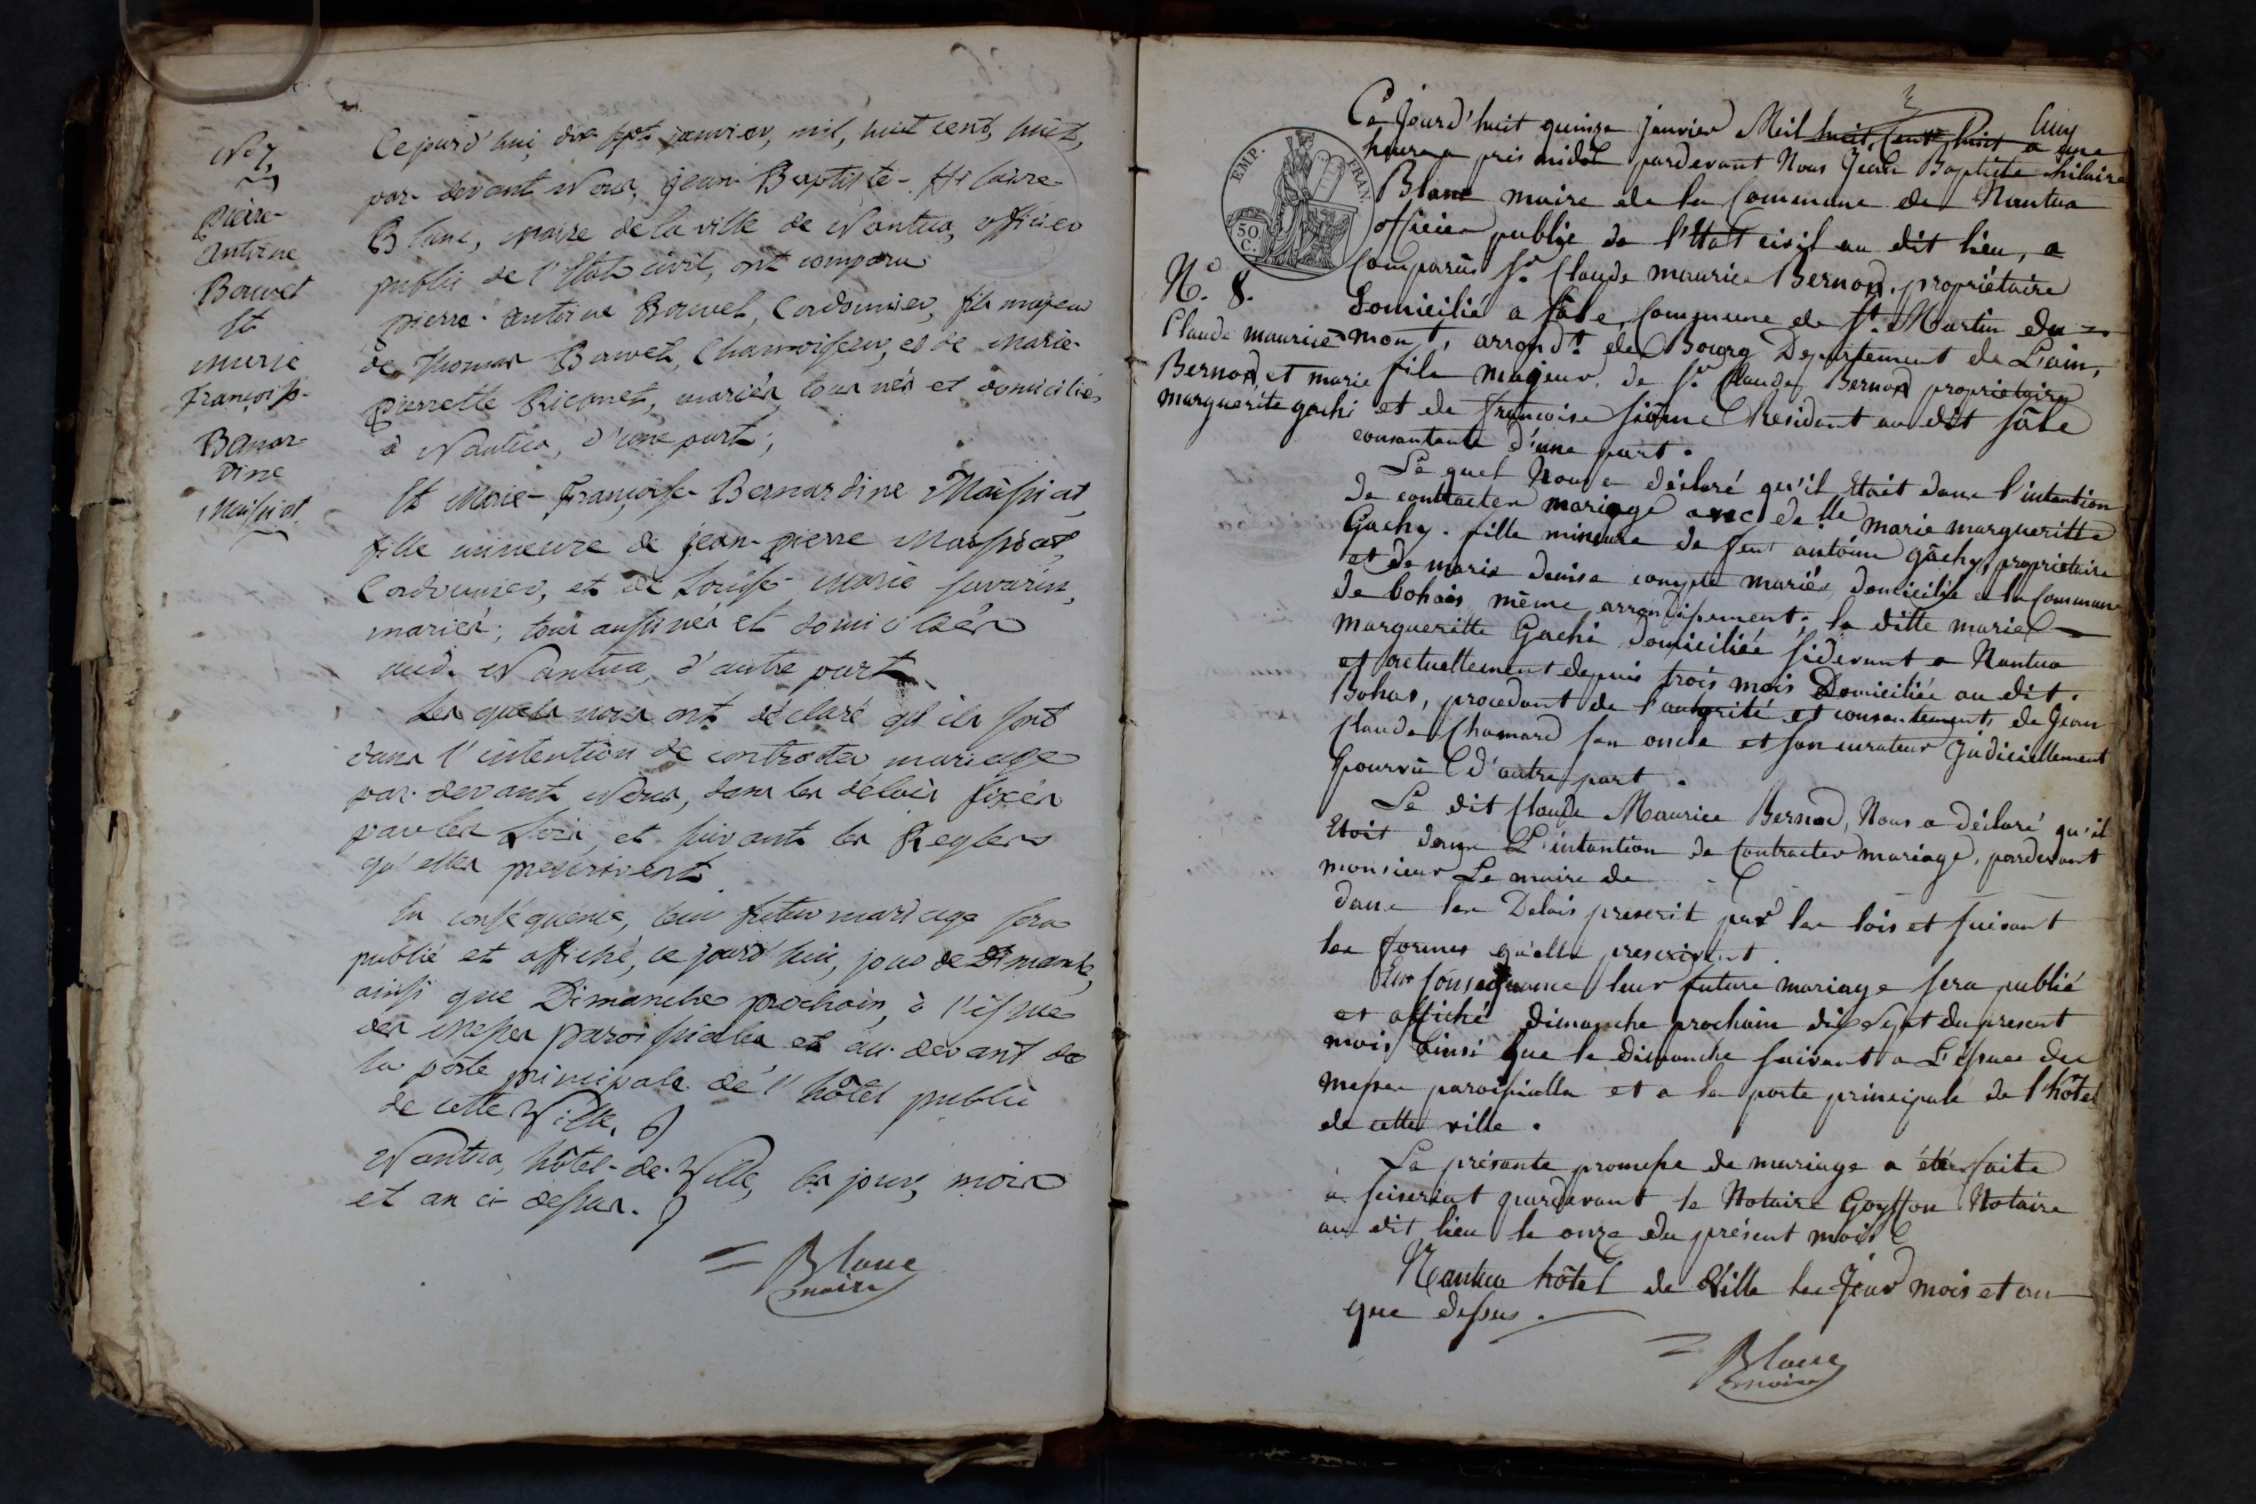 N.o 7.
Pierre-
antoine
Bouvet
Et
marie
françoise-
Bernar-
dine
Maissiat
Cejourd'hui, dix sept janvier, mil, huit cent, huit,
par-devant Nous, jean-Baptiste-Hilaire
Blanc, maire de la ville de Nantua, officier
public de l'Etat civil, ont comparu
pierre-antoine Bouvet, Cordonnier, fils majeur
de Thomas Bouvet, Chamoiseur, et de Marie-
Pierrette mariés, tous nés et domiciliés
à Nantua, d'une part;
Et Marie-françoise-Bernardine Maissiat,
fille mineure de jean-pierre Maissiat,
Cordonnier, et de Louise-Marie Savarin,
mariés; tous aussi nés et domiciliés
aud. Nantua, d'autre part.
Lesquels nous ont déclaré qu'ils sont
dans l'intention de contracter mariage
par-devant Nous, dans les délais fixés
par les Lois, et suivant les Regles
qu'elles prescrivent.
En conséquence, leur futur mariage sera
publié et affiché, ce jourd'hui, jour de Dimanche,
ainsi que Dimanche prochain, à l'issue
des messes paroissiales et au-devant de
la porte principale de l'hôtel public
de cette Ville.
Nantua, hôtel-de-Ville, les jour, mois
et an ci-dessus.
Blanc
maire
EMP. FRAN.
50 C.
N.o 8.
Claude maurice
Bernod, et marie
marguerite gachi
Ce Jourd'huit quinze janvier Mil huit Cent huit a une
heure a près midi pardevant Nous Jean Baptiste hilaire
Blanc maire de la Commune de Nantua
officier public de l'Etat civil au dit lieu, a
Comparûs Sr. Claude maurice Bernod, propriétaire
Domicilié a Sâle, Commune de St. Martin du
mont, arrondt. de Bourg Departement de L'ain,
fils majeur de Sr. Claude Bernod propriétaire
et de françoise Résidant au dit Sâle
consantants d'une part.
Le quel Nous a déclaré qu'il Etait dans l'intention
de contracter mariage avec delle marie margueritte
Gachy. fille mineure de feu antoine gâchy, propriétaire
et de marie denise compte mariés, domicilié a la Commune
de bohas même arrondissement; la ditte marie
margueritte Gachi domiciliée sidevant a Nantua
et actuellement depuis trois mois Domiciliée au dit.
Bohas, procedant de l'autorité et consentement de Jean
Claude Chamard son oncle et son curateur Judiciellement
pourvû d'autre part.
Le dit Claude Maurice Bernod, Nous a déclaré qu'il
Etoit dans L'intantion de Contracter mariage, pardevant
monsieur Le maire de
dans les Delais prescrit par les lois et suivant
les formes qu'elle prescrivent.
En Consequance leur future mariage sera publié
et affiché dimanche prochain dix Sept du present
mois ainsi que le dimanche suivant a L'issue des
messes paroissialles et a la porte principale de l'hôtel
de cette ville.
La présante promesse de mariage a étée faite
a seiseriat pardevant le Notaire Goyffon Notaire
au dit lieu le onze du présent mois
Nantua hôtel de Ville les Jour mois et an
que dessus.
Blanc
maire